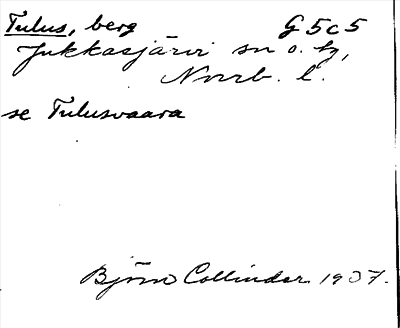 Tulus, berg G5c5
Jukkasjärvi sn o. tg,
Norrb. l.
se Tulusvaara
Björn Collinder 1937.